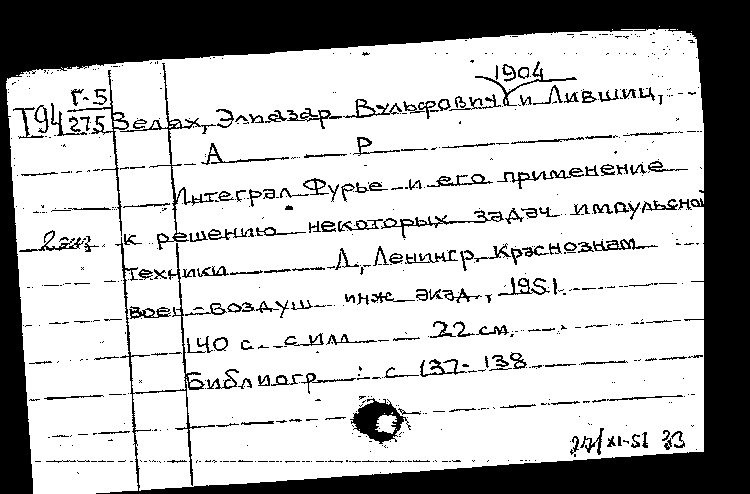 1904
Т94 Г-5/275 Велах, Элиазар Вульфович и Лившиц,
А Р
Интеграл Фурье и его применение
2 экз к решению некоторых задач импульсной
техники Л, Ленингр. Краснознам.
воен-воздуш инж акад., 1951.
140 с. с илл 22 см.
Библиогр : с 137-138
27/XI-51